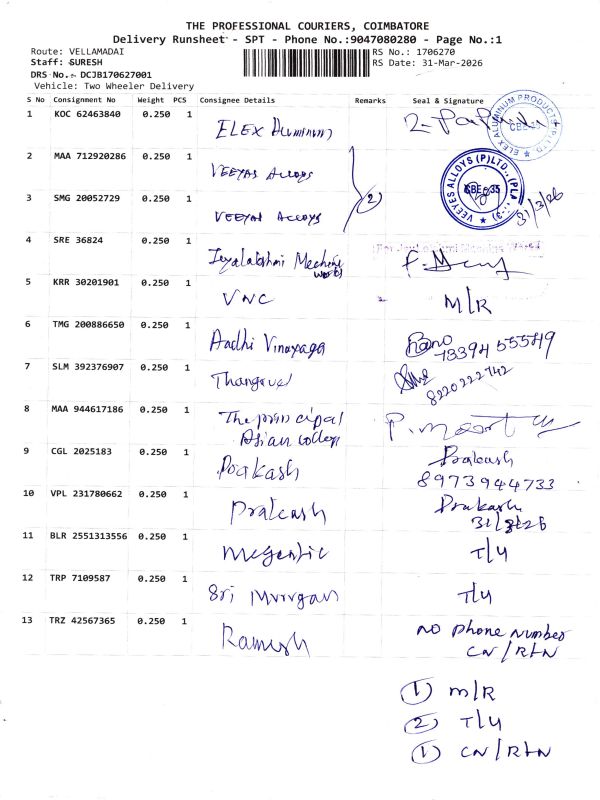 THE PROFESSIONAL COURIERS, COIMBATORE
Delivery Runsheet - SPT - Phone No.:9047080280 - Page No.:1
Route: VELLAMADAI
RS No.: 1706270
Staff: SURESH
RS Date: 31-Mar-2026
DRS No.. DCJB170627001
Vehicle: Two Wheeler Delivery
S No Consignment No Weight PCS Consignee Details Remarks Seal & Signature
1 KOC 62463840 0.250 1 ELEX Aluminum
ELEX ALUMINUM PRODUCTS (P) LTD.,
CBE-35
2 MAA 712920286 0.250 1 VEEYAS Alloys
(2)
VEEYES ALLOYS (P) LTD.,
CBE-35
3 SMG 20052729 0.250 1 VEEYAS Alloys
31/3/26
4 SRE 36824 0.250 1 Jeyalakshmi Mechine
works
5 KRR 30201901 0.250 1 VNC M/R
6 TMG 200886650 0.250 1 Aadhi Vinayaga
78394 55549
7 SLM 392376907 0.250 1 Thangavel
8220222742
8 MAA 944617186 0.250 1 The principal
Asian college
9 CGL 2025183 0.250 1 Prakash Prakash
8973944733
10 VPL 231780662 0.250 1 Prakash Prakash
31/3/26
11 BLR 2551313556 0.250 1 megentic T/4
12 TRP 7109587 0.250 1 Sri Murugan T/4
13 TRZ 42567365 0.250 1 Ramesh NO phone number
CN/RTN
(1) M/R
(2) T/4
(1) CN/RTN